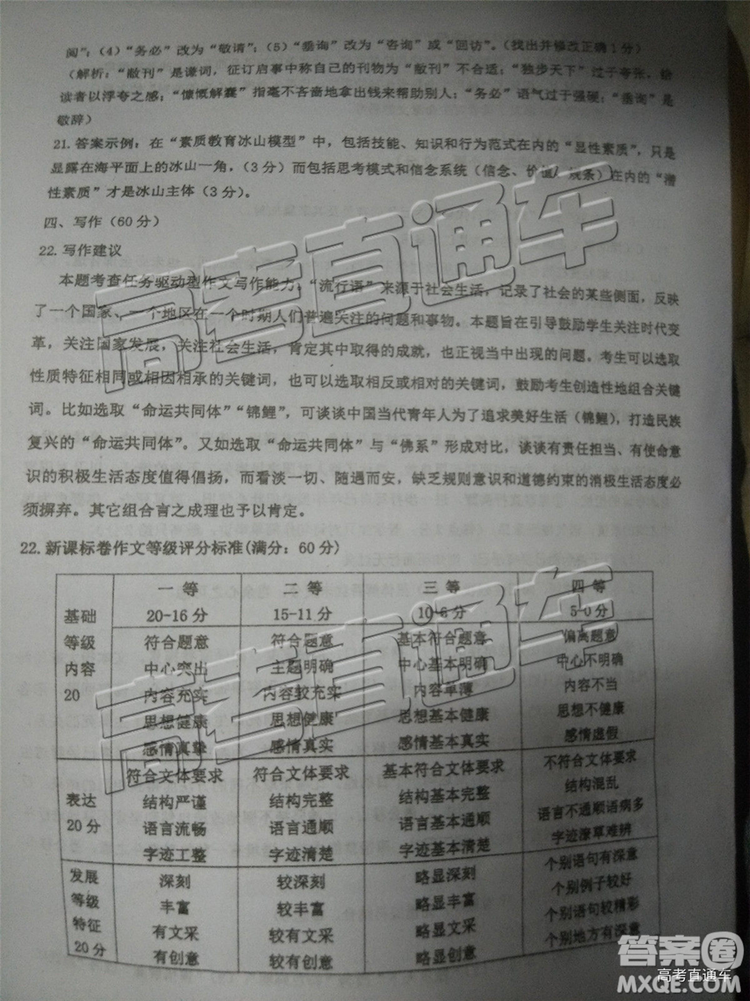 阅”；（4）“务必”改为“敬请”；（5）“垂询”改为“咨询”或“回访”。（找出并修改正确1分）
（解析：“敝刊”是谦词，征订启事中称自己的刊物为“敝刊”不合适；“独步天下”过于夸张，给
读者以浮夸之感；“慷慨解囊”指毫不吝啬地拿出钱来帮助别人；“务必”语气过于强硬；“垂询”是
敬辞）
21.答案示例：在“素质教育冰山模型”中，包括技能、知识和行为范式在内的“显性素质”，只是
显露在海平面上的冰山一角，（3分）而包括思考模式和信念系统（信念、价值、规条）在内的“潜
性素质”才是冰山主体（3分）。
四、写作（60分）
22.写作建议
本题考查任务驱动型作文写作能力。“流行语”来源于社会生活，记录了社会的某些侧面，反映
了一个国家、一个地区在一个时期人们普遍关注的问题和事物。本题旨在引导鼓励学生关注时代变
革，关注国家发展，关注社会生活，肯定其中取得的成就，也正视当中出现的问题。考生可以选取
性质特征相同或相因相承的关键词，也可以选取相反或相对的关键词，鼓励考生创造性地组合关键
词。比如选取“命运共同体”“锦鲤”，可谈谈中国当代青年人为了追求美好生活（锦鲤），打造民族
复兴的“命运共同体”。又如选取“命运共同体”与“佛系”形成对比，谈谈有责任担当、有使命意
识的积极生活态度值得倡扬，而看淡一切、随遇而安，缺乏规则意识和道德约束的消极生活态度必
须摒弃。其它组合言之成理也予以肯定。
22.新课标卷作文等级评分标准(满分：60分)
一等 二等 三等 四等
基础 20-16分 15-11分 10-6分 5-0分
等级 符合题意 符合题意 基本符合题意 偏离题意
内容 中心突出 主题明确 中心基本明确 中心不明确
20 内容充实 内容较充实 内容单薄 内容不当
思想健康 思想健康 思想基本健康 思想不健康
感情真挚 感情真实 感情基本真实 感情虚假
符合文体要求 符合文体要求 基本符合文体要求 不符合文体要求
表达 结构严谨 结构完整 结构基本完整 结构混乱
20分 语言流畅 语言通顺 语言基本通顺 语言不通顺语病多
字迹工整 字迹清楚 字迹基本清楚 字迹潦草难辨
发展 深刻 较深刻 略显深刻 个别语句有深意
等级 丰富 较丰富 略显丰富 个别例子较好
特征 有文采 较有文采 略显文采 个别语句较精彩
20分 有创意 较有创意 略显创意 个别地方有深意
高考直通车
高考直通车
答案圈
MXQE.COM
高考直通车